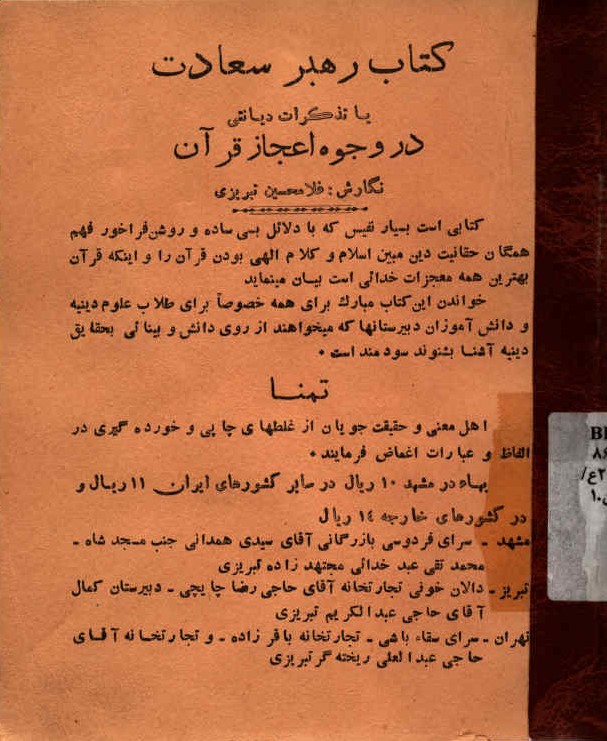 کتاب رهبر سعادت
یا تذکرات دیانتی
در وجوه اعجاز قرآن
نگارش: غلامحسین تبریزی
کتابی است بسیار نفیس که با دلائل بسی ساده و روشن فراخور فهم
همگان حقانیت دین مبین اسلام و کلام الهی بودن قرآن را و اینکه قرآن
بهترین همه معجزات خدائی است بیان مینماید
خواندن این کتاب مبارك برای همه خصوصاً برای طلاب علوم دینیه
و دانش آموزان دبیرستانها که میخواهند از روی دانش و بینائی بحقایق
دینیه آشنا بشنوند سودمند است.
تمنا
اهل معنی و حقیقت جویان از غلطهای چاپی و خورده گیری در
الفاظ و عبارات اغماض فرمایند.
بهاء در مشهد ۱۰ ریال در سایر کشورهای ایران ۱۱ ریال و
در کشورهای خارجه ۱٤ ریال
مشهد - سرای فردوسی بازرگانی آقای سیدی همدانی جنب مسجد شاه -
محمد تقی عبد خدائی مجتهد زاده تبریزی
تبریز - دالان خوئی تجارتخانه آقای حاجی رضا چایچی - دبیرستان کمال
آقای حاجی عبدالکریم تبریزی
تهران - سرای سقاء باشی - تجارتخانه باقر زاده - و تجارتخانه آقای
حاجی عبدالعلی ریخته گر تبریزی